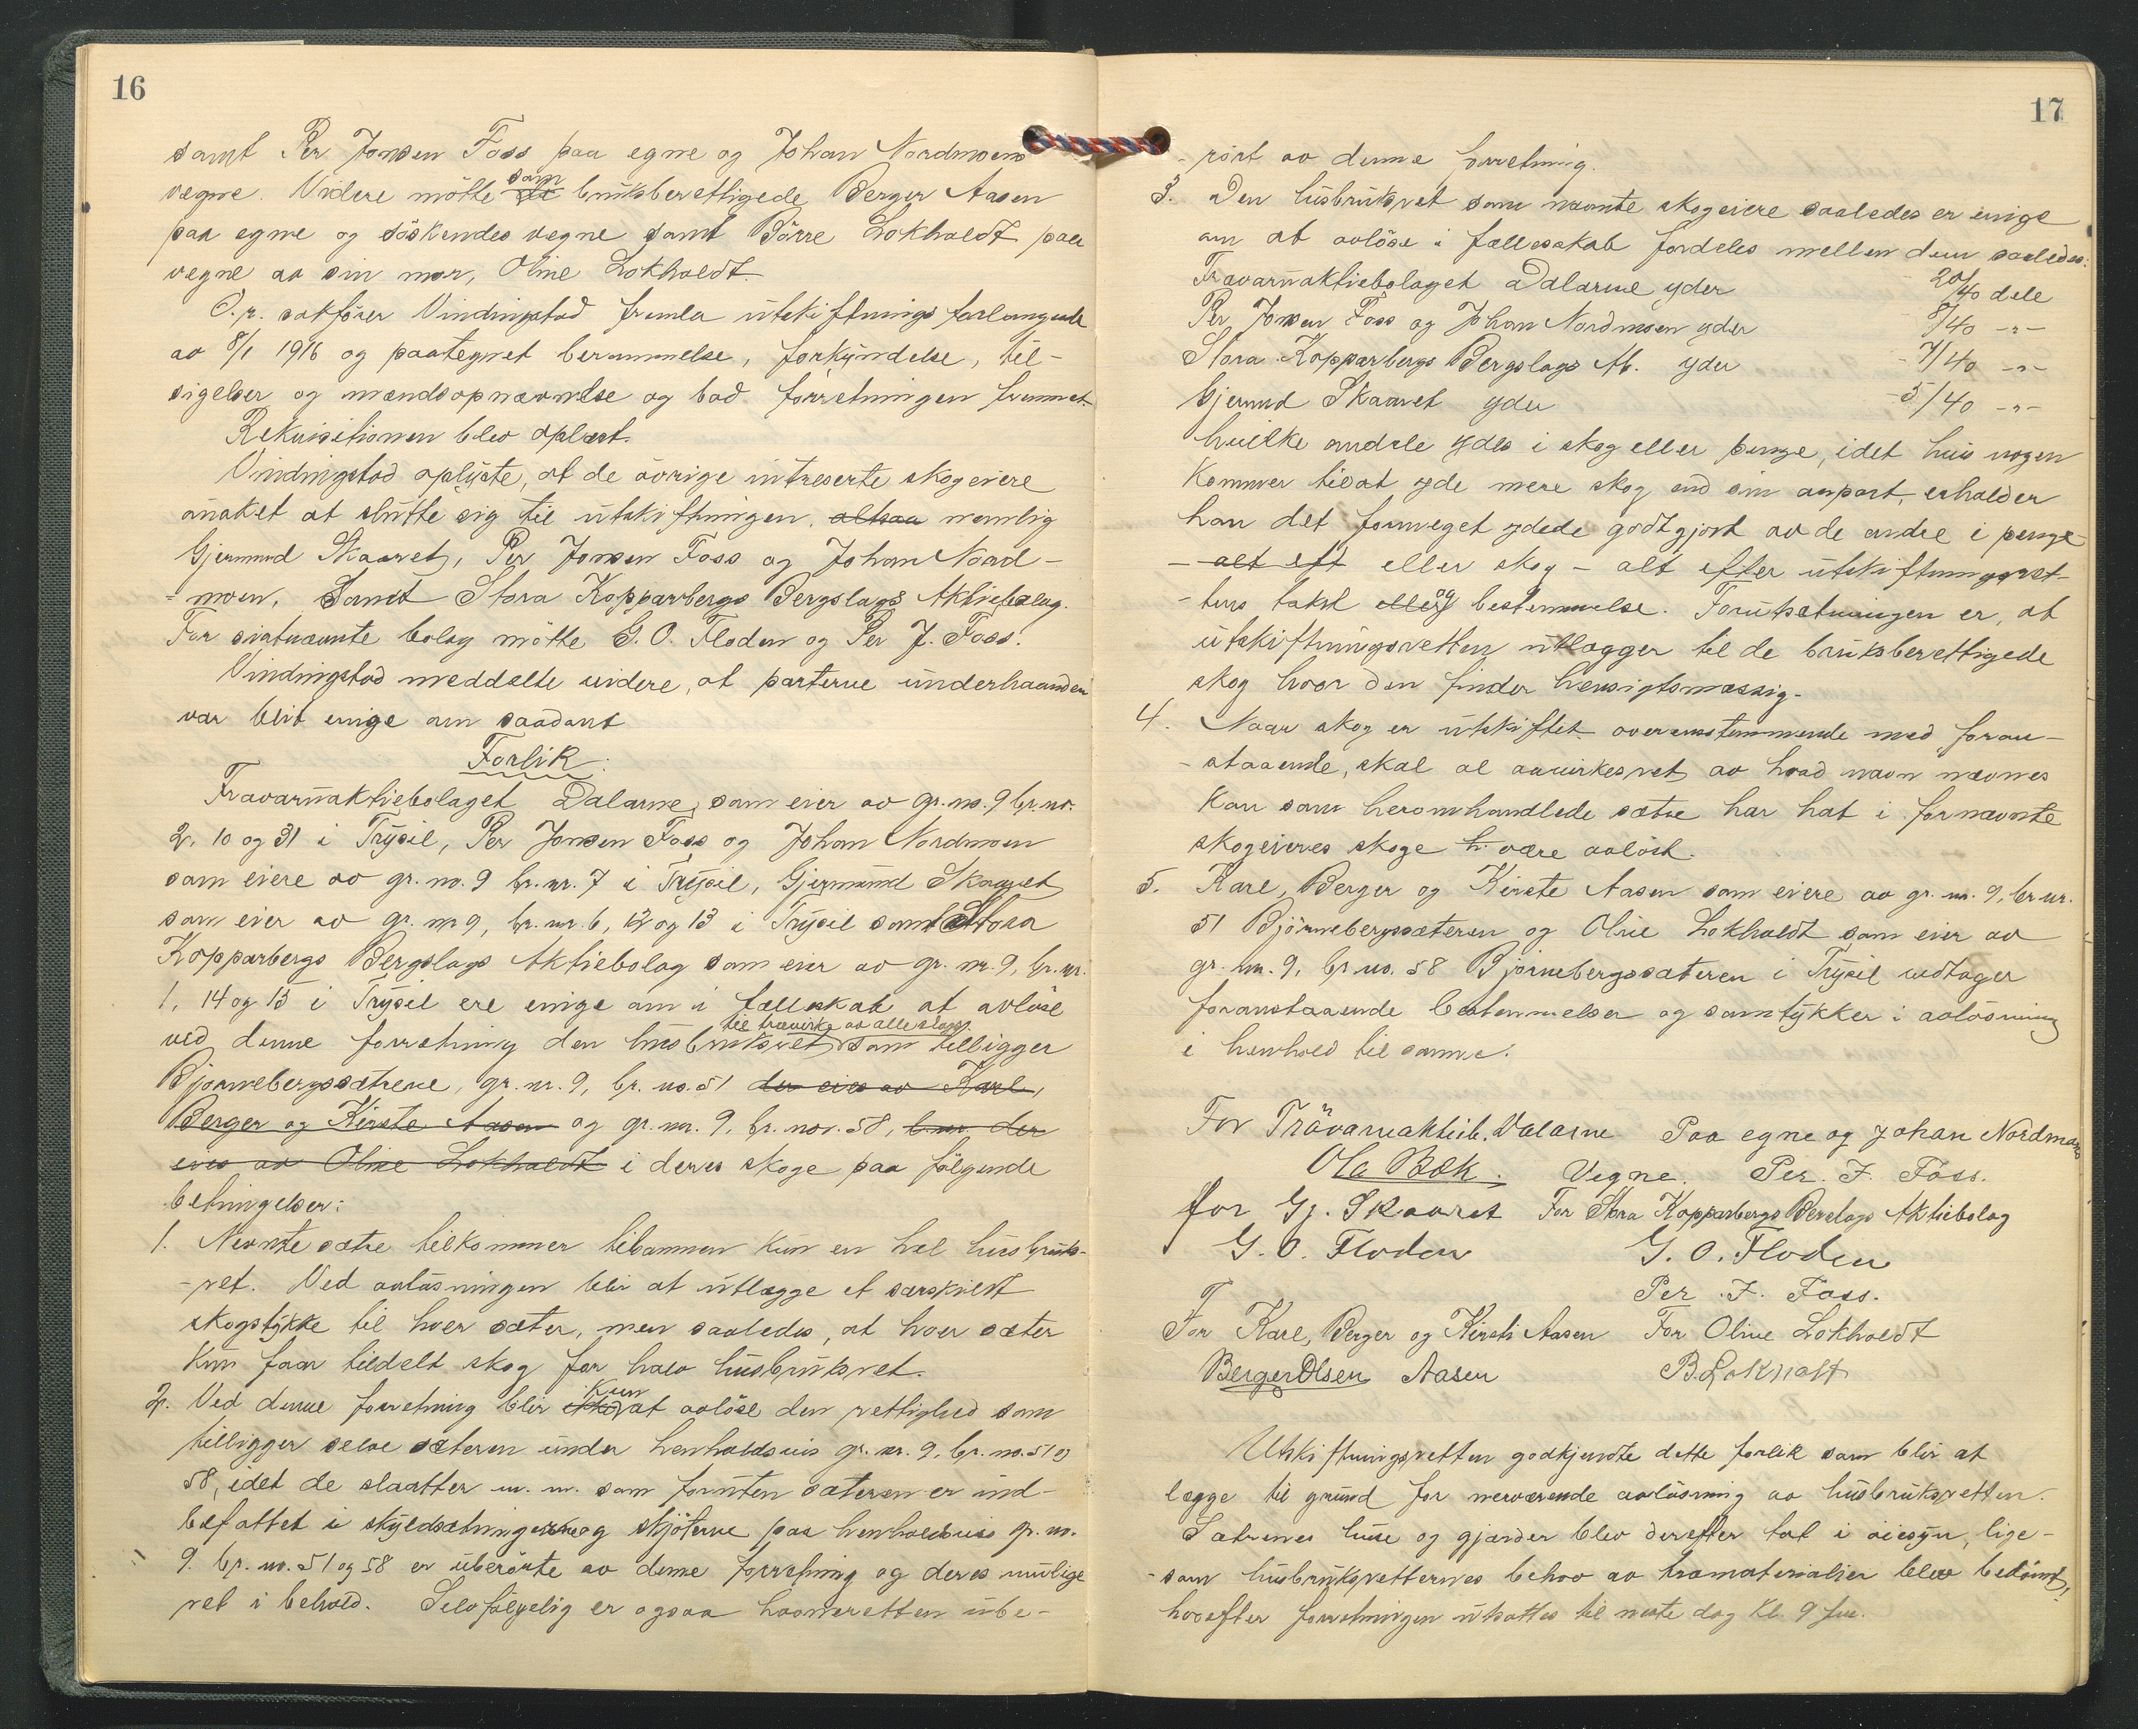 16
samt Per Jonsen Foss paa egne og Johan Nordmoens
vegne. Videre mötte som bruksberettigede Berger Aasen
paa egne og söskendes vegne samt Börre Lokholdt paa
vegne av sin mor, Oline Lokholdt.
O.r. sakförer Vindingstad fremla utskiftningsforlangende
av 8/1 1916 og paategnet berammelse, forkyndelse, til-
sigelser og mændsopnævnelse og bad forretningen fremmet.
Rekvisitionen blev oplæst.
Vindingstad oplyste, at de övrige intreserte skogeiere
önsket at slutte sig til utskiftningen, altsaa nemlig
Gjermund Skaaret, Per Jonsen Foss og Johan Nord-
-moen, Samt Stora Kopparbergs Bergslags Aktiebolag.
For sistnævnte bolag mötte G. O. Floden og Per J. Foss.
Vindingstad meddelte videre, at parterne underhaanden
var blit enige om saadant
Forlik:
Travaruaktiebolaget Dalarne, som eier av gr. no. 9 br. no.
2, 10 og 31 i Trysil, Per Jonsen Foss og Johan Nordmoen
som eiere av gr. no. 9 br. nr. 7 i Trysil, Gjermund Skaaret
som eier av gr. nr 9, br. nr. 6, 12 og 13 i Trysil samt Stora
Kopparbergs Bergslags Aktiebolag som eier av gr. nr. 9, br. nr.
1, 14 og 15 i Trysil ere enige om i fælleskab at avlöse
til trævirke av alle slags
ved denne forretning den husbruksret som tilligger
Bjørnebergssætrene, gr. nr. 9, br. no. 51 der eies av Karl,
Berger og Kirste Aasen og gr. nr. 9, br. nor. 58, der
eies av Oline Lokholdt i deres skoge paa fölgende
betingelser:
1. Nevnte sætre tilkommer tilsammen kun en hel husbruks-
-ret. Ved avlösningen blir at utlægge et særskildt
skogstykke til hver sæter, men saaledes, at hver sæter
kun faar tildelt skog for halv husbruksret.
2. Ved denne forretning blir kun at avlöse den rettighed som
tilligger selve sæteren under henholdsvis gr. nr. 9, br. no. 51 og
58, idet de slaatter m. m. som foruten sæteren er ind-
befattet i skyldsætningerne og skjöterne paa henholdsvis gr. no.
9. br. no. 51 og 58 er uberörte av denne forretning og deres mulige
ret i behold. Selvfölgelig er ogsaa havneretten ube-
17
-rört av denne forretning.
3. Den husbruksret som nævnte skogeiere saaledes er enige
om at avlöse i fællesskab fordeles mellem dem saaledes:
Travaruaktiebolaget Dalarne yder 20/40 dele
Per Jonsen Foss og Johan Nordmoen yder 8/40 -"-
Stora Kopparbergs Bergslags Ab. yder 7/40 -"-
Gjermund Skaaret yder 5/40 -"-
hvilke andele ydes i skog eller penge, idet hvis nogen
kommer tilat yde mere skog end sin anpart, erholder
han det formeget ydede godtgjort av de andre i penge
- alt eft eller skog - alt efter utskiftningsret-
-tens takst eller og bestemmelse. Forutsætningen er, at
utskiftningsretten utlægger til de bruksberettigede
skog hvor den finder hensigtsmæssig.
4. Naar skog er utskiftet overensstemmende med foran-
-staaende, skal al aavirkesret av hvad navn nævnes
kan som heromhandlede sætre har hat i fornævnte
skogeieres skoge være avlöst.
5. Karl, Berger og Kirste Aasen som eiere av gr. nr. 9, br. nr.
51 Björnebergssæteren og Oline Lokholdt som eier av
gr. nr. 9, br. no. 58 Björnebergssæteren i Trysil vedtager
foranstaaende bestemmelser og samtykker i avlösning
i henhold til samme.
For Trävaruaktieb. Dalarne Paa egne og Johan Nordmoens
Ola Bæk. Vegne. Per. J. Foss.
for Gj. Skaaret For Stora Kopparbergs Berslags Aktiebolag
G. O. Floden G. O. Floden
Per. J. Foss.
For Karl, Berger og Kirsti Aasen For Oline Lokholdt
Berger Olsen Aasen B. Lokholt
Utskiftningsretten godkjendte dette forlik som blir at
lægge til grund for nærværende avlösning av husbruksretten.
Sætrenes huse og gjærder blev derefter tat i öiesyn, lige-
-som husbruksretternes behov av træmaterialier blev bedömt,
hvorefter forretningen utsattes til næste dag kl. 9 fm.